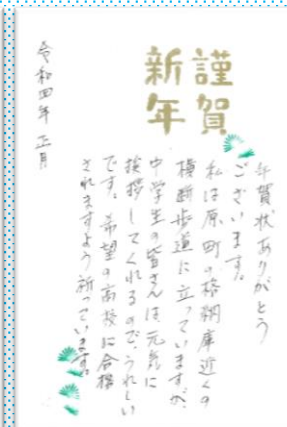 謹賀
新年
年賀状ありがとう
ございます。
私は原町の格納庫近くの
横断歩道に立っていますが、
中学生の皆さんは、元気に
挨拶してくれるので、うれしい
です。希望の高校に合格
されますよう祈っています。
令和四年 正月